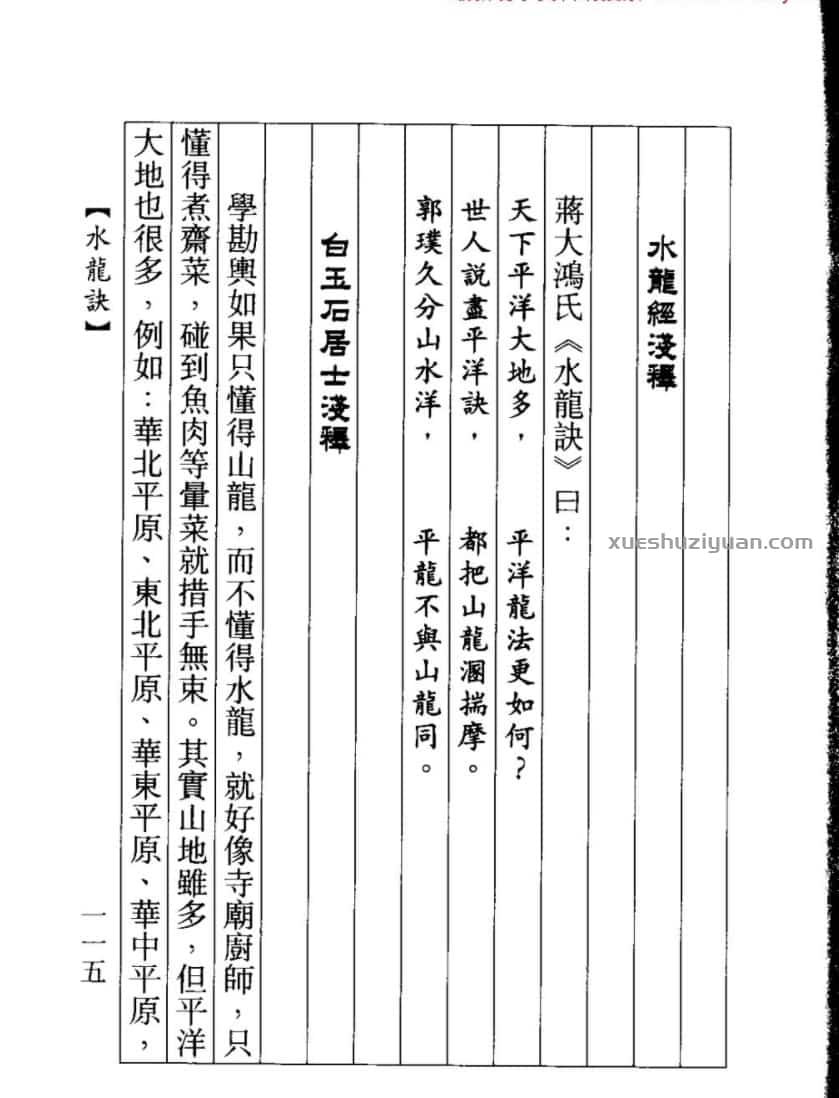 水龍經淺釋
蔣大鴻氏《水龍訣》曰：
天下平洋大地多，　平洋龍法更如何？
世人說盡平洋訣，　都把山龍溷揣摩。
郭璞久分山水洋，　平龍不與山龍同。
白玉石居士淺釋
學勘輿如果只懂得山龍，而不懂得水龍，就好像寺廟廚師，只
懂得煮齋菜，碰到魚肉等暈菜就措手無束。其實山地雖多，但平洋
大地也很多，例如：華北平原、東北平原、華東平原、華中平原，
【水龍訣】
一一五
xueshuziyuan.com